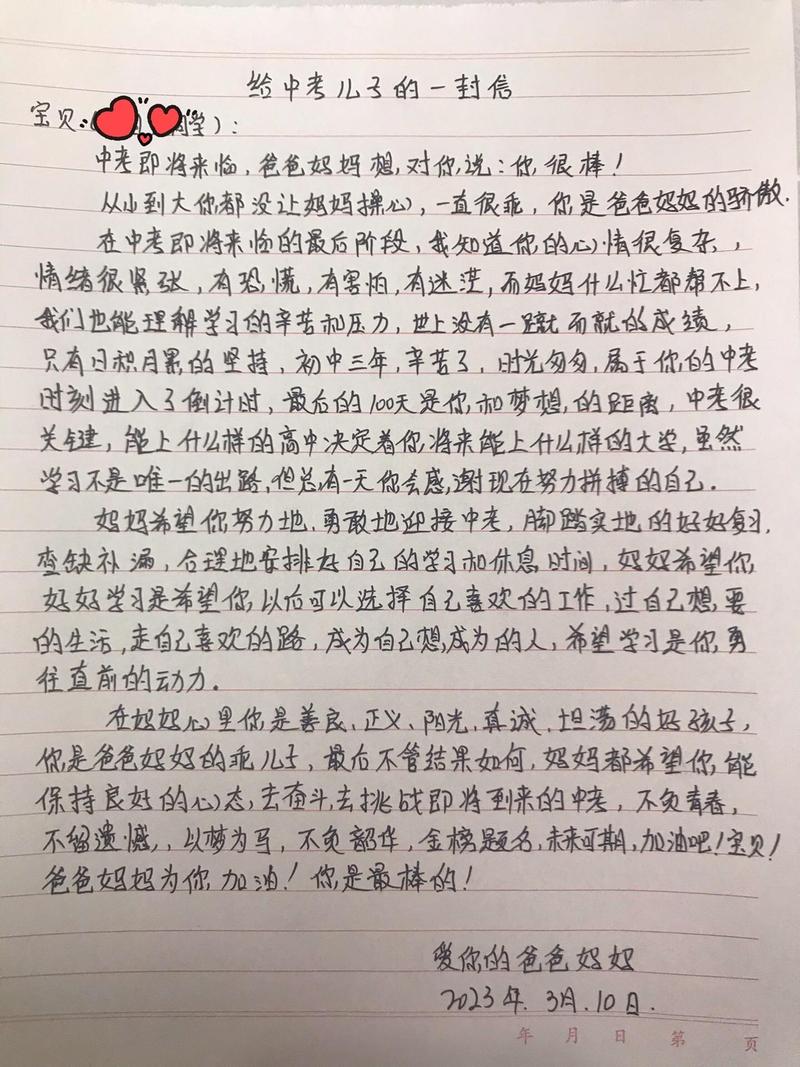 给中考儿子的一封信
宝贝:( 同学):
中考即将来临,爸爸妈妈想,对你,说:你,很棒!
从小到大你都没让妈妈操心,一直很乖,你是爸爸妈妈的骄傲.
在中考即将来临的最后阶段,我知道你的心情很复杂,
情绪很紧张,有恐慌,有害怕,有迷茫,而妈妈什么忙都帮不上,
我们也能理解学习的辛苦和压力,世上没有一蹴而就的成绩,
只有日积月累的坚持,初中三年,辛苦了,时光匆匆,属于你的中考
时刻进入了倒计时,最后的100天是你,和梦想,的距离,中考很
关键,能上什么样的高中决定着你,将来能上什么样的大学,虽然
学习不是唯一的出路,但总有一天你会感,谢现在努力拼搏的自己.
妈妈希望你努力地,勇敢地迎接中考,脚踏实地的好好复习,
查缺补漏,合理地安排好自己的学习和休息时间,妈妈希望你,
好好学习是希望你,以后可以选择自己喜欢的工作,过自己想,要
的生活,走自己喜欢的路,成为自己想,成为的人,希望学习是你,勇
往直前的动力.
在妈妈心里你是善良、正义、阳光、真诚、坦荡的好孩子,
你是爸爸妈妈的乖儿子,最后不管结果如何,妈妈都希望你,能
保持良好的心态,去奋斗,去挑战即将到来的中考,不负青春,
不留遗憾,以梦为马,不负韶华,金榜题名,未来可期,加油吧!宝贝!
爸爸妈妈为你,加油!你是最棒的!
爱你的爸爸妈妈
2023年.3月.10日.
年 月 日 第 页